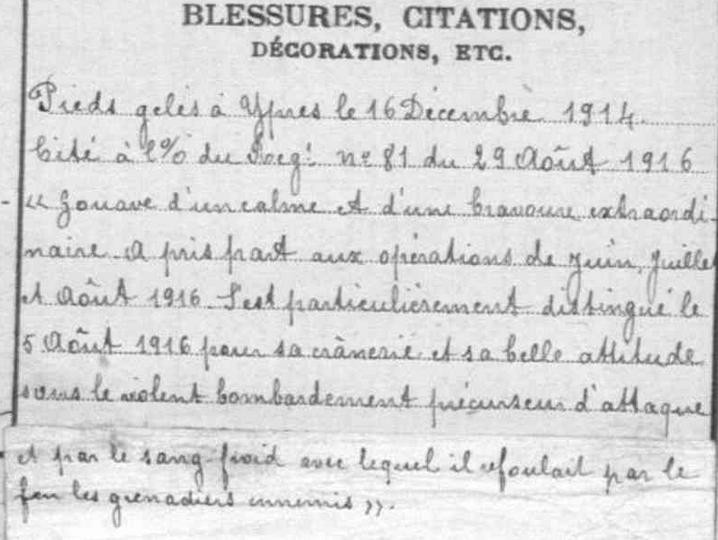 BLESSURES, CITATIONS,
DÉCORATIONS, ETC.
Pieds gelés à Ypres le 16 Décembre 1914.
Cité à l'% du Reg! nº 81 du 29 Août 1916
« Zouave d'un calme et d'une bravoure extraordi-
naire. A pris part aux opérations de Juin, Juillet
et Août 1916. S'est particulièrement distingué le
5 Août 1916 pour sa crânerie et sa belle attitude
sous le violent bombardement précurseur d'attaque
et par le sang-froid avec lequel il refoulait par le
feu les grenadiers ennemis ».